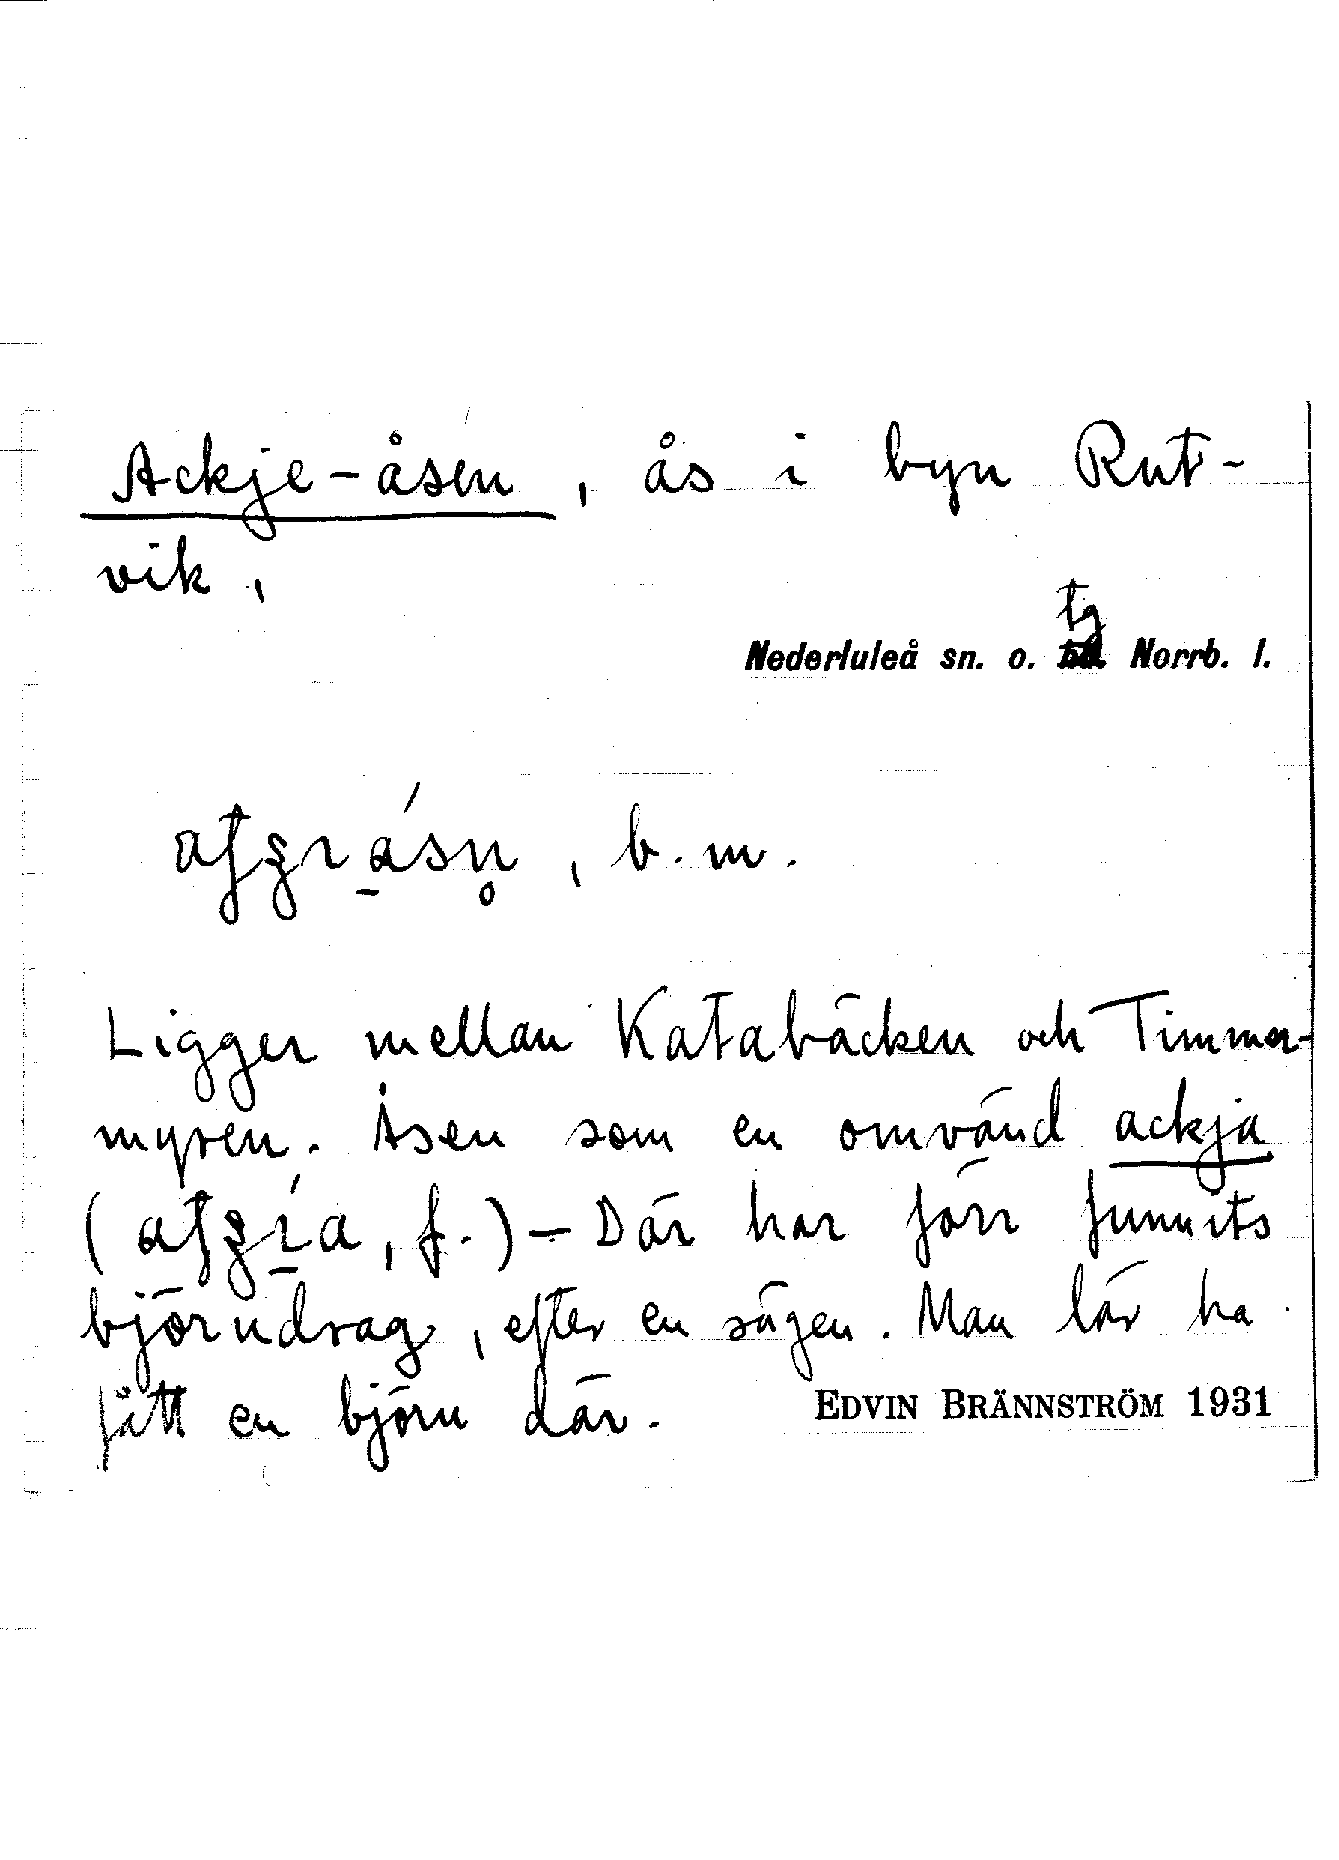 Ackje-åsen, ås i byn Rut-
vik,
tg
Nederluleå sn. o. Norrb. l.
, b. m.
Ligger mellan Katabäcken och Timmer-
myren. Åsen som en omvänd ackja
( , f.) – Där har förr funnits
björndrag, efter en sägen. Man lär ha
fått en björn där.
EDVIN BRÄNNSTRÖM 1931